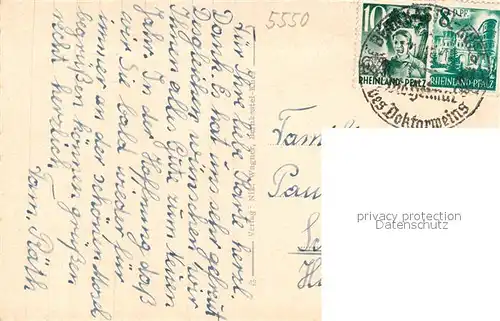 Für Ihre liebe Karte herzl.
Dank. Es hat uns sehr gefreut
Desgleichen wünschen wir
Ihnen alles Gute zum Neuen
Jahr. In der Hoffnung daß
wir Sie bald wieder für
immer an der schönen Mosel
begrüßen können grüßen
recht herzlich
Fam. Räth
Verlag: Nik. Wagner,
5550
10
RHEINLAND-PFALZ
8
RHEINLAND-PFALZ
Heimat
des Doktorweins
Fam
Pau
privacy protection
www.ansichtskarten-center.de